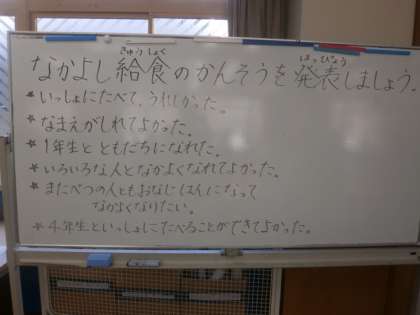 きゅうしょく はっぴょう
なかよし給食のかんそうを発表しましょう。
* いっしょにたべて、うれしかった。
* なまえがしれてよかった。
* 1年生とともだちになれた。
* いろいろな人となかよくなれてよかった。
* またべつの人ともおなじはんになって
なかよくなりたい。
* 4年生といっしょにたべることができてよかった。